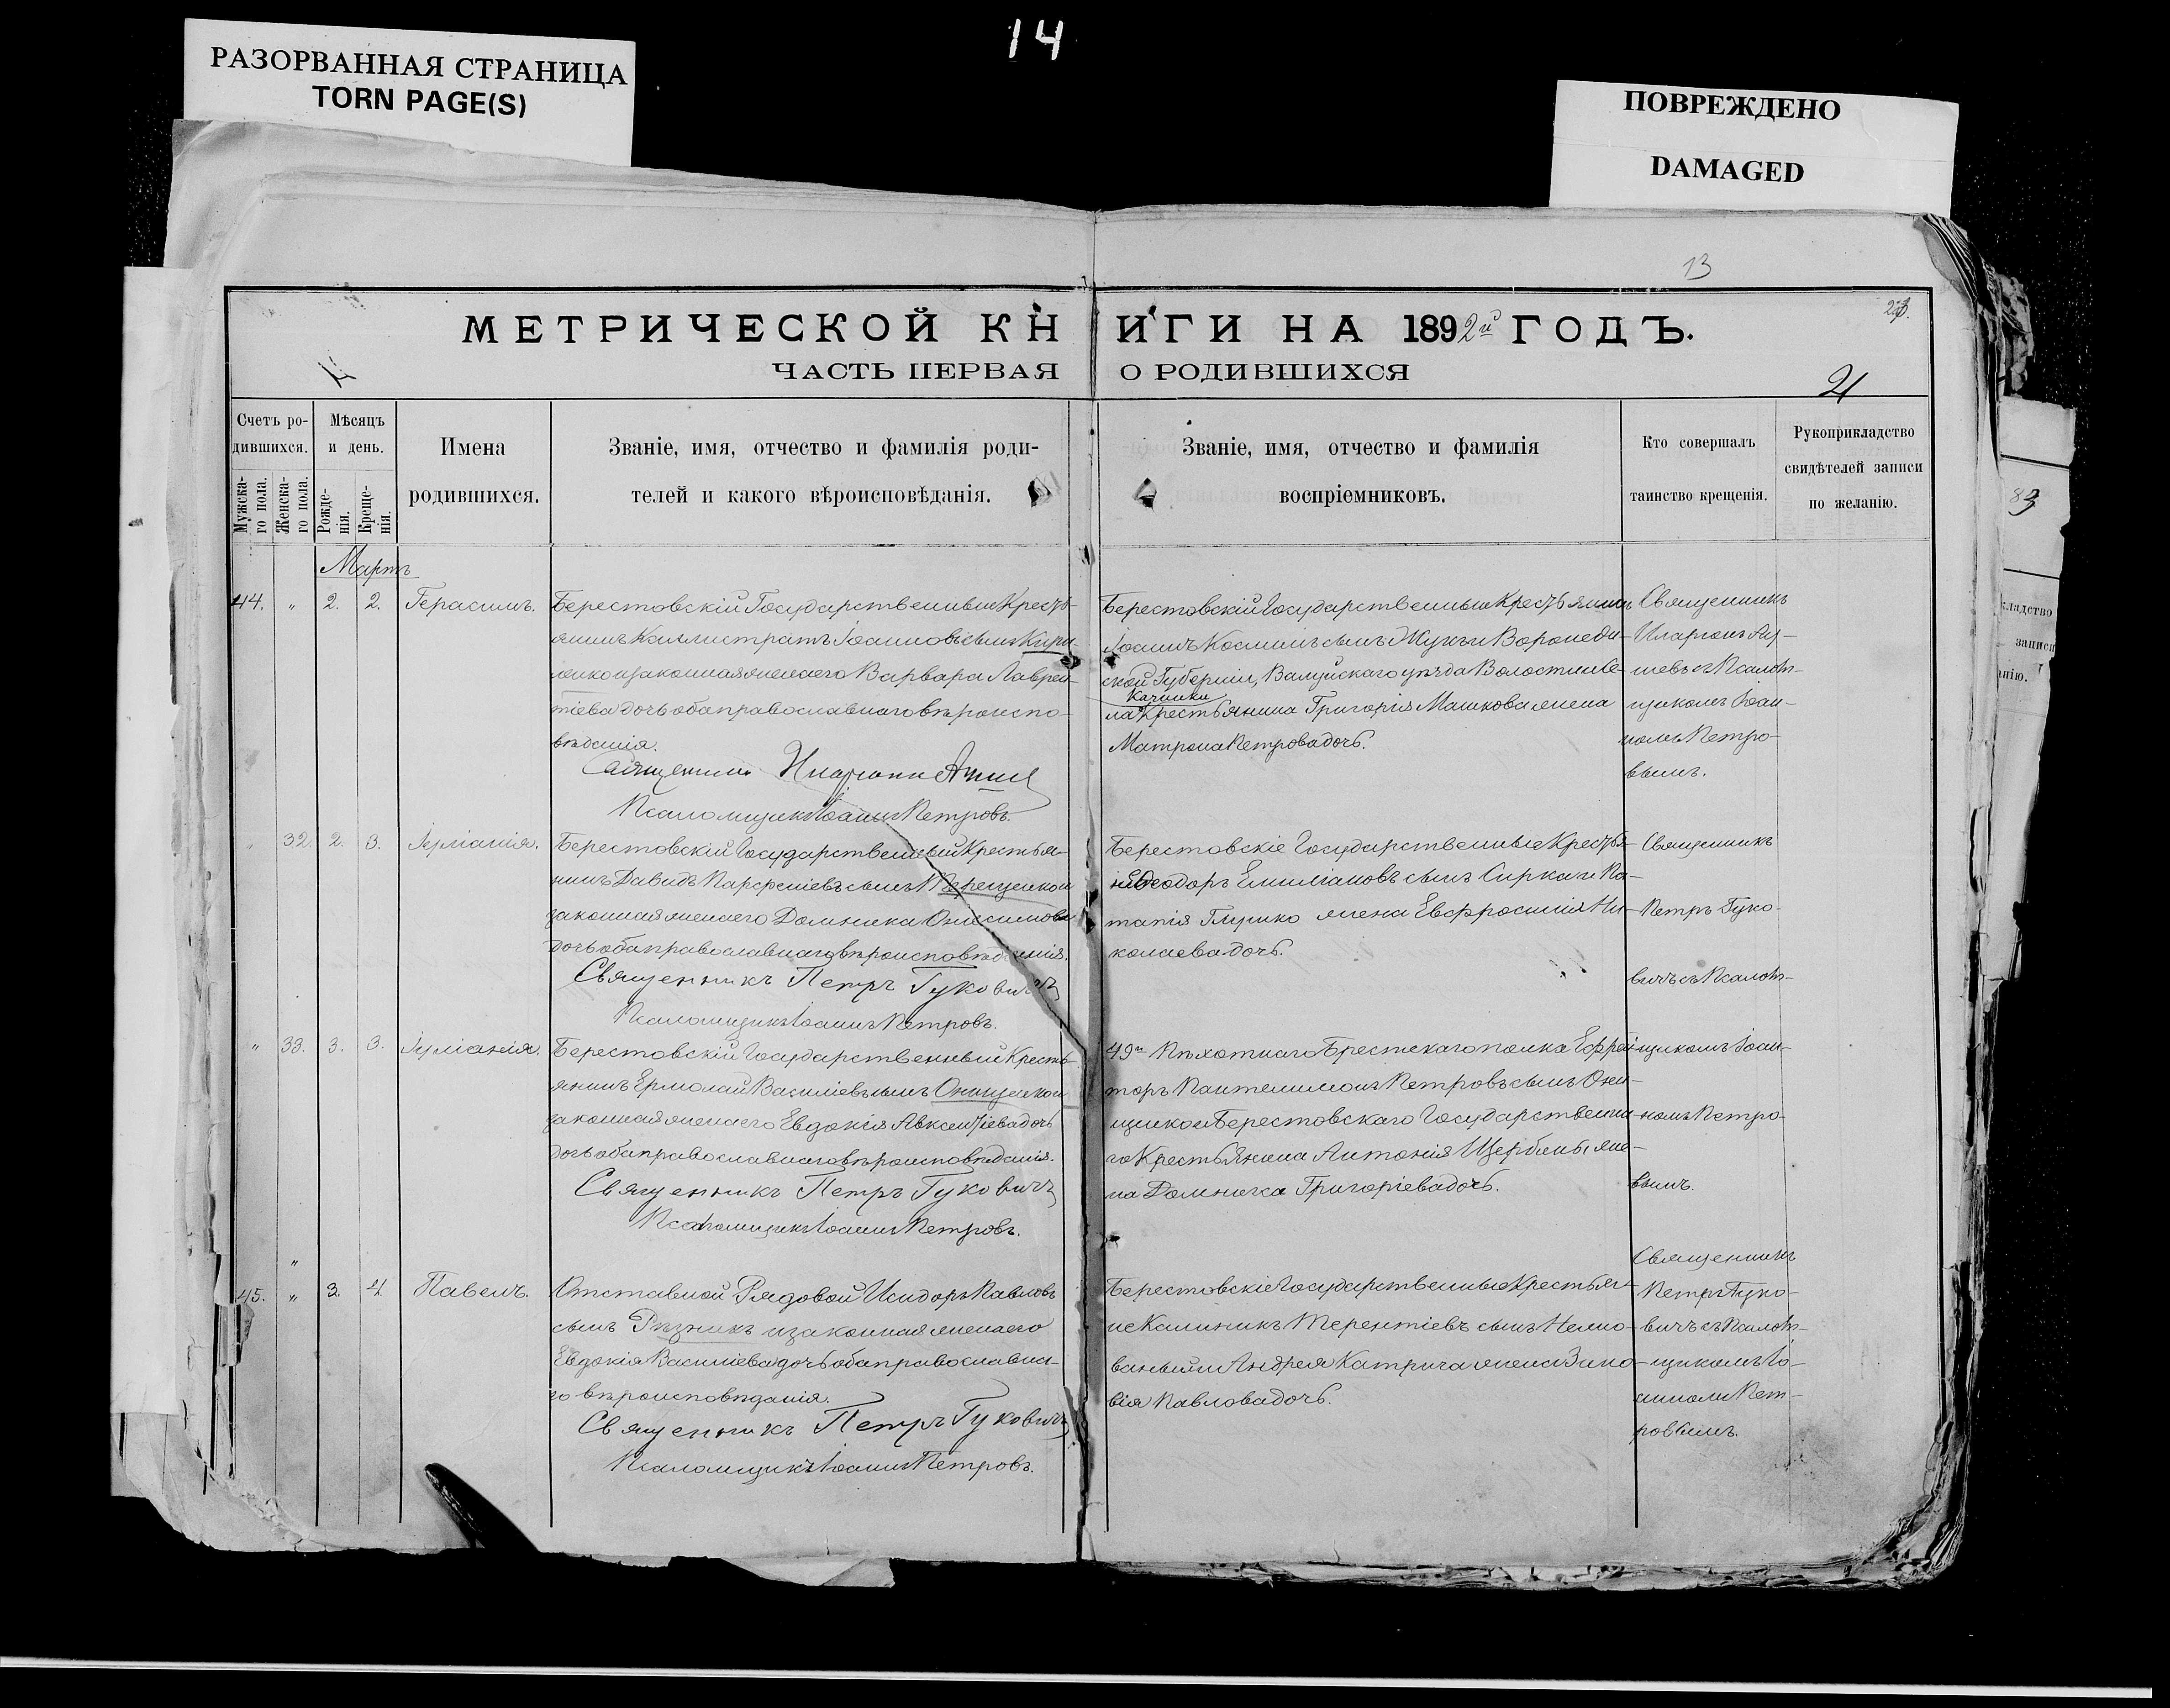 14
РАЗОРВАННАЯ СТРАНИЦА
TORN PAGE(S)
ПОВРЕЖДЕНО
DAMAGED
13
МЕТРИЧЕСКОЙ КН
ИГИ НА 1892й ГОДЪ.
ЧАСТЬ ПЕРВАЯ
О РОДИВШИХСЯ
21
Счетъ ро-
дившихся.
Мужска-
го пола.
Женска-
го пола.
Мѣсяцъ
и день.
Рожде-
нія.
Креще-
нія.
Имена
родившихся.
Званіе, имя, отчество и фамилія роди-
телей и какого вѣроисповѣданія.
Званіе, имя, отчество и фамилія
воспріемниковъ.
Кто совершалъ
таинство крещенія.
Рукоприкладство
свидѣтелей записи
по желанію.
Мартъ
44. " 2. 2. Герасимъ.
Берестовскій Государственные Кресть-
янинъ Каллистратъ Іоанновъ сынъ
и законная жена его Варвара Лаврен-
тіева дочь оба православнаго вѣроиспо-
вѣданія.
Священникъ Иларіонъ
Псаломщикъ Іоаннъ Петровъ.
Берестовскій Государственные Крестьянинъ
Іоаннъ Косминъ сынъ Жукъ и Воронеж-
ской Губерніи, Валуйскаго уѣзда Волости
Крестьянина Григорія Машкова жена
Матрона Петрова дочь.
Священникъ
Иларіонъ
съ Псалом-
щикомъ Іоан-
номъ Петро-
вымъ.
" 32. 2. 3. Іуліанія.
Берестовскій Государственный Крестья-
нинъ Давидъ Парѳеніевъ сынъ
законная жена его Домника Онисимова
дочь оба православнаго вѣроисповѣданія.
Священникъ Петръ Гуковичъ
Псаломщикъ Іоаннъ Петровъ.
Берестовскіе Государственные Крестья-
не Ѳеодоръ Емиліановъ сынъ Сирка и
жена Евфросинія Ни-
колаева дочь.
Священникъ
Петръ Гуко-
вичъ съ Псалом-
щикомъ Іоан-
номъ Петро-
вымъ.
" 33. 3. 3. Іуліанія.
Берестовскій Государственный Кресть-
янинъ Ермолай Василіевъ сынъ Онищенко и
законная жена его Евдокія Авксентіева дочь
дочь оба православнаго вѣроисповѣданія.
Священникъ Петръ Гуковичъ
Псаломщикъ Іоаннъ Петровъ.
49го Пѣхотнаго Брестскаго полка Ефрей-
торъ Пантелимонъ Петровъ сынъ Они-
щенко и Берестовскаго Государственна-
го Крестьянина Антонія Щербины же-
на Домника Григоріева дочь.
45. " 3. 4. Павелъ.
Отставной Рядовой Исидоръ Павловъ
сынъ Рѣзникъ и законная жена его
Евдокія Василіева дочь оба православна-
го вѣроисповѣданія.
Священникъ Петръ Гуковичъ
Псаломщикъ Іоаннъ Петровъ.
Берестовскіе Государственные Крестья-
не Калиникъ Терентіевъ сынъ
и Андрея Катрича жена Зино-
вія Павлова дочь.
Священникъ
Петръ Гуко-
вичъ съ Псалом-
щикомъ Іо-
анномъ Пет-
ровымъ.